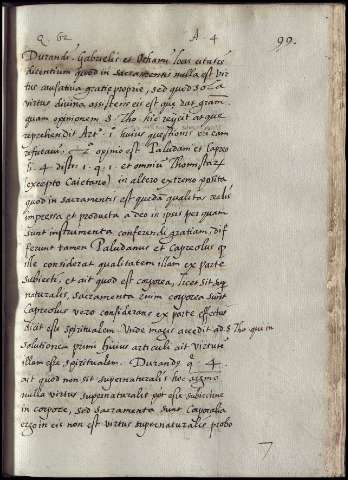 q. 62 A. 4 99.
Durandi. Gabrielis et Ochami locis citatis
dicentium quod in sacramentis nulla est vir
tus causativa gratie proprie, sed quod sola
virtus divina assistens eis est que dat gram.
quam opinionem S. Tho. hic reijcit atque
reprehendit Art. 1 huius questionis
refutavi. 2ª opinio est Paludani et Capreo
li. 4 distin. 1. q. 1. et omniũ Thomistarũ
(excepto Caietano) in altero extremo posita
quod in sacramentis est quedã qualitas realis
impressa et producta a deo in ipsis per quam
sunt instrumenta conferendi gratiam, dif
ferunt tamen Paludanus et Capreolus q
ille considerat qualitatem illam ex parte
subiecti, et ait quod est corporea, licet sit sup
naturalis, sacramenta enim corporea sunt
Capreolus vero considerans ex parte effectus
dicit esse spiritualem. Unde magis accedit ad S Tho. qui in
solutione primi huius articuli ait virtute
illam esse spiritualem. Durandus q. 4.
ait quod non sit supernaturalis hoc argmo
nulla virtus supernaturalis pot esse subiective
in corpore, sed sacramenta sunt corporalia
ergo in eis non est virtus supernaturalis probo